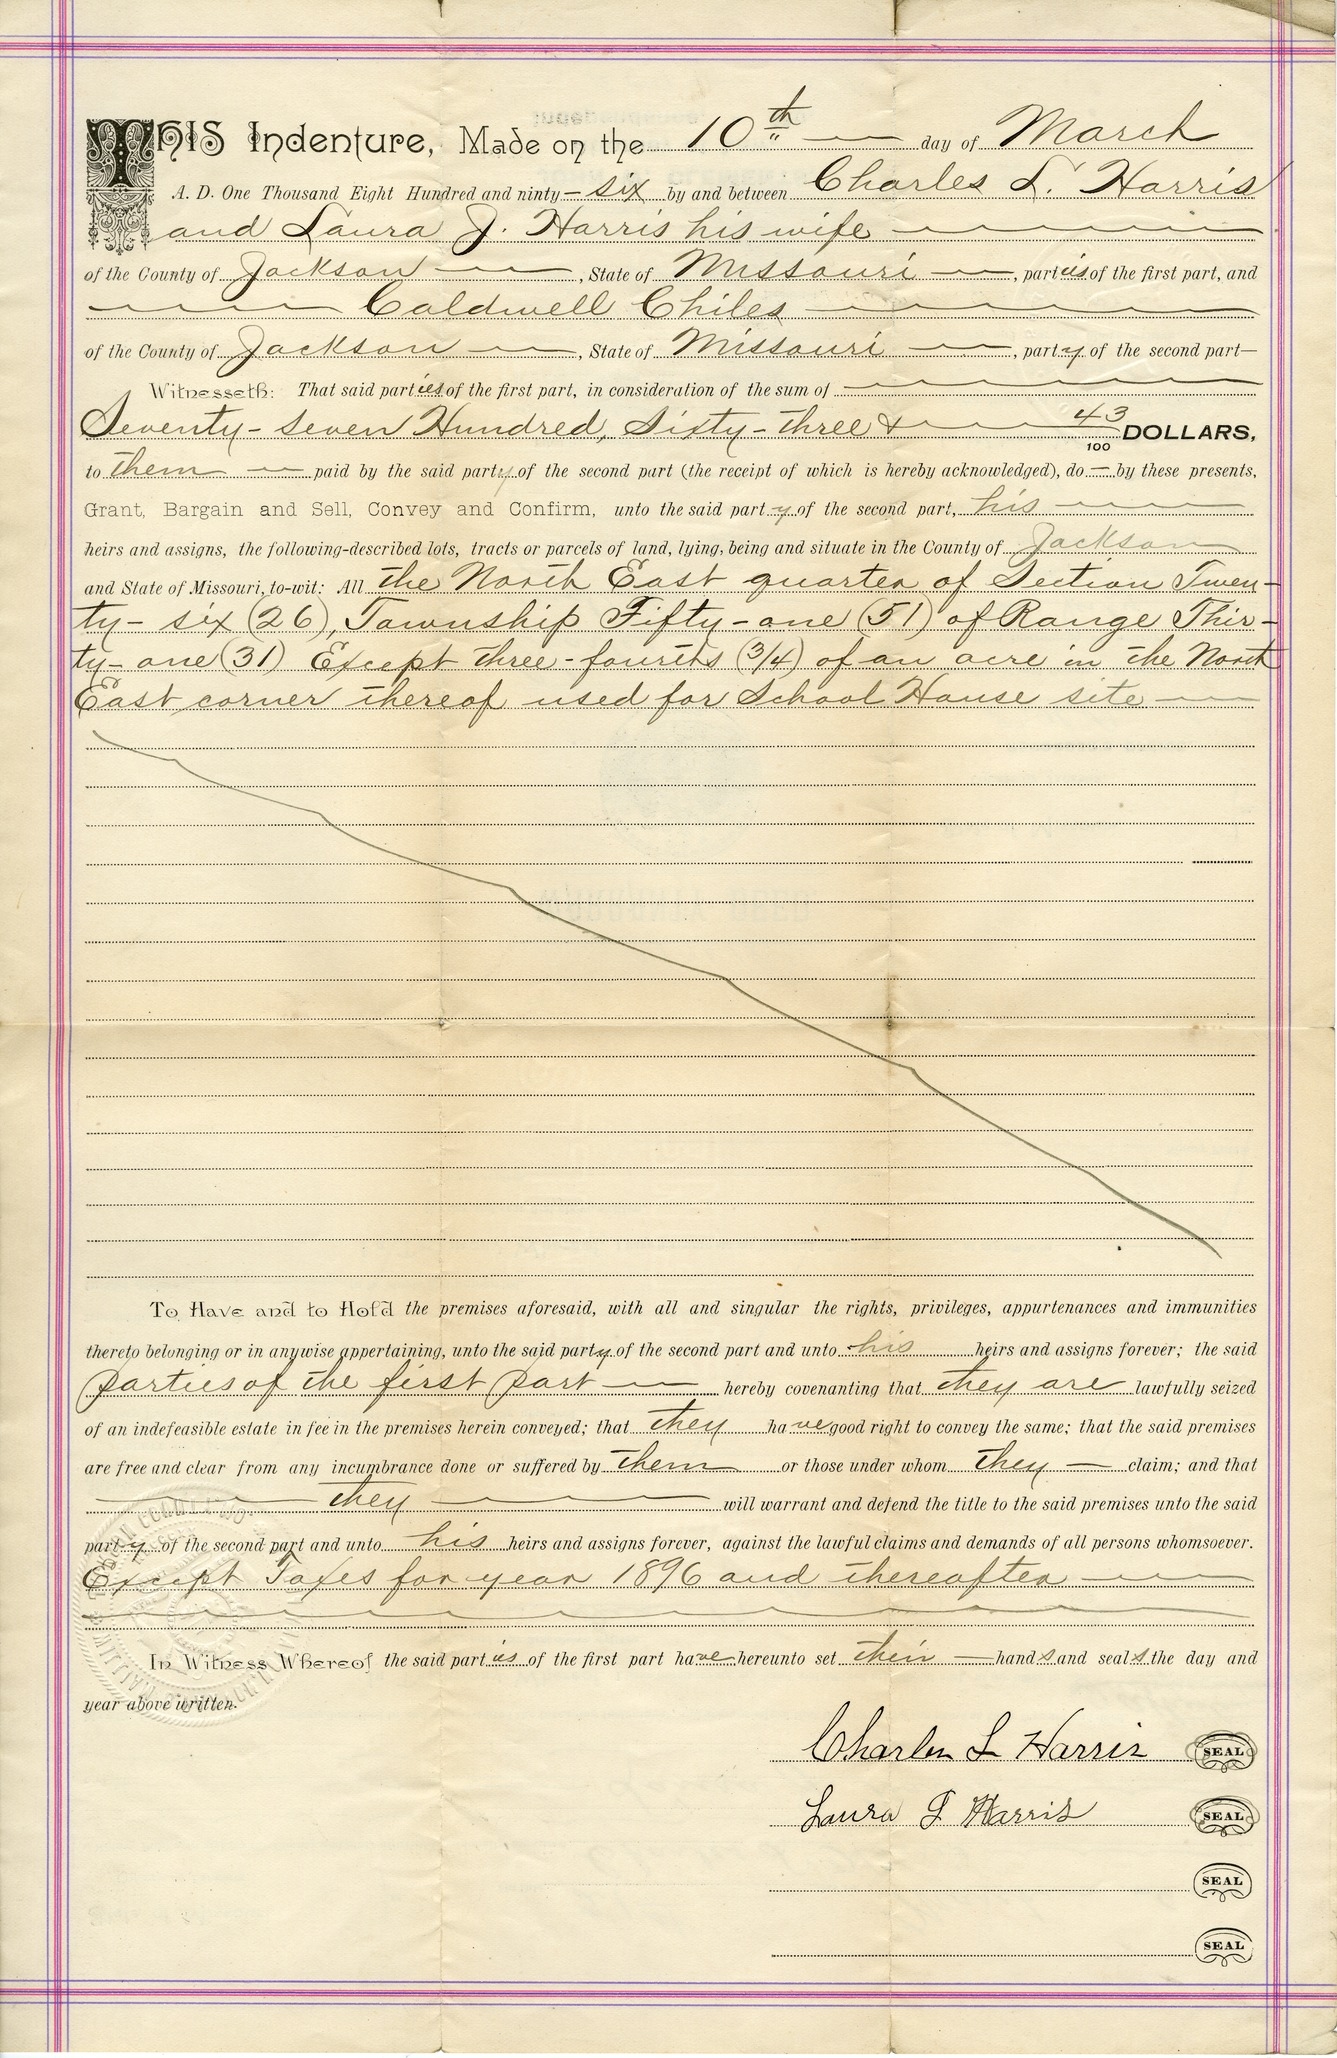 THIS Indenture, Made on the 10th day of March
A. D. One Thousand Eight Hundred and ninty-six by and between Charles L. Harris
and Laura J. Harris his wife
of the County of Jackson, State of Missouri, parties of the first part, and
Caldwell Chiles
of the County of Jackson, State of Missouri, party of the second part—
Witnesseth: That said parties of the first part, in consideration of the sum of
Seventy-seven Hundred, Sixty-three & 43/100 DOLLARS,
to them paid by the said party of the second part (the receipt of which is hereby acknowledged), do — by these presents,
Grant, Bargain and Sell, Convey and Confirm, unto the said party of the second part, his
heirs and assigns, the following-described lots, tracts or parcels of land, lying, being and situate in the County of Jackson
and State of Missouri, to-wit: All the North East quarter of Section Twen-
ty-six (26), Township Fifty-one (51) of Range Thir-
ty-one (31) Except three-fourths (3/4) of an acre in the North
East corner thereof used for School House site
To Have and to Hold the premises aforesaid, with all and singular the rights, privileges, appurtenances and immunities
thereto belonging or in anywise appertaining, unto the said party of the second part and unto his heirs and assigns forever; the said
parties of the first part hereby covenanting that they are lawfully seized
of an indefeasible estate in fee in the premises herein conveyed; that they have good right to convey the same; that the said premises
are free and clear from any incumbrance done or suffered by them or those under whom they claim; and that
they will warrant and defend the title to the said premises unto the said
party of the second part and unto his heirs and assigns forever, against the lawful claims and demands of all persons whomsoever.
Except Taxes for year 1896 and thereafter
In Witness Whereof the said parties of the first part have hereunto set their hands and seals the day and
year above written.
Charles L Harris SEAL
Laura J Harris SEAL
SEAL
SEAL